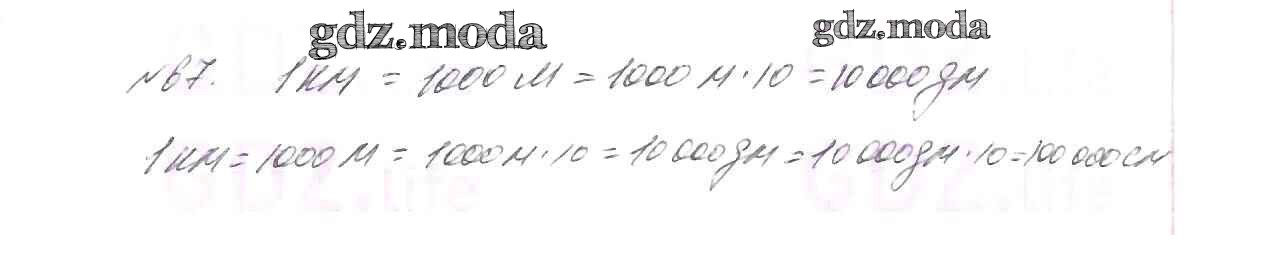 gdz.moda gdz.moda
№67. 1км = 1000м = 1000м·10 = 10 000дм
1км = 1000м = 1000м·10 = 10 000дм = 10 000дм·10 = 100 000см
GDZ.life GDZ.life